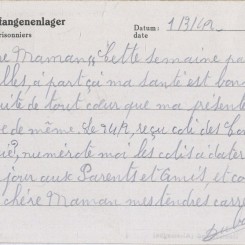 fangenenlager
risonniers
Datum: 1/3/42
date
re Maman,, Cette semaine pa
lles, à part ça ma santé est bon
uite de tout cœur que ma présente
e de même. Le 24/2, reçu colis des
numérote moi les colis à dater
jour aux Parents et Amis, et
chère Maman mes tendres care